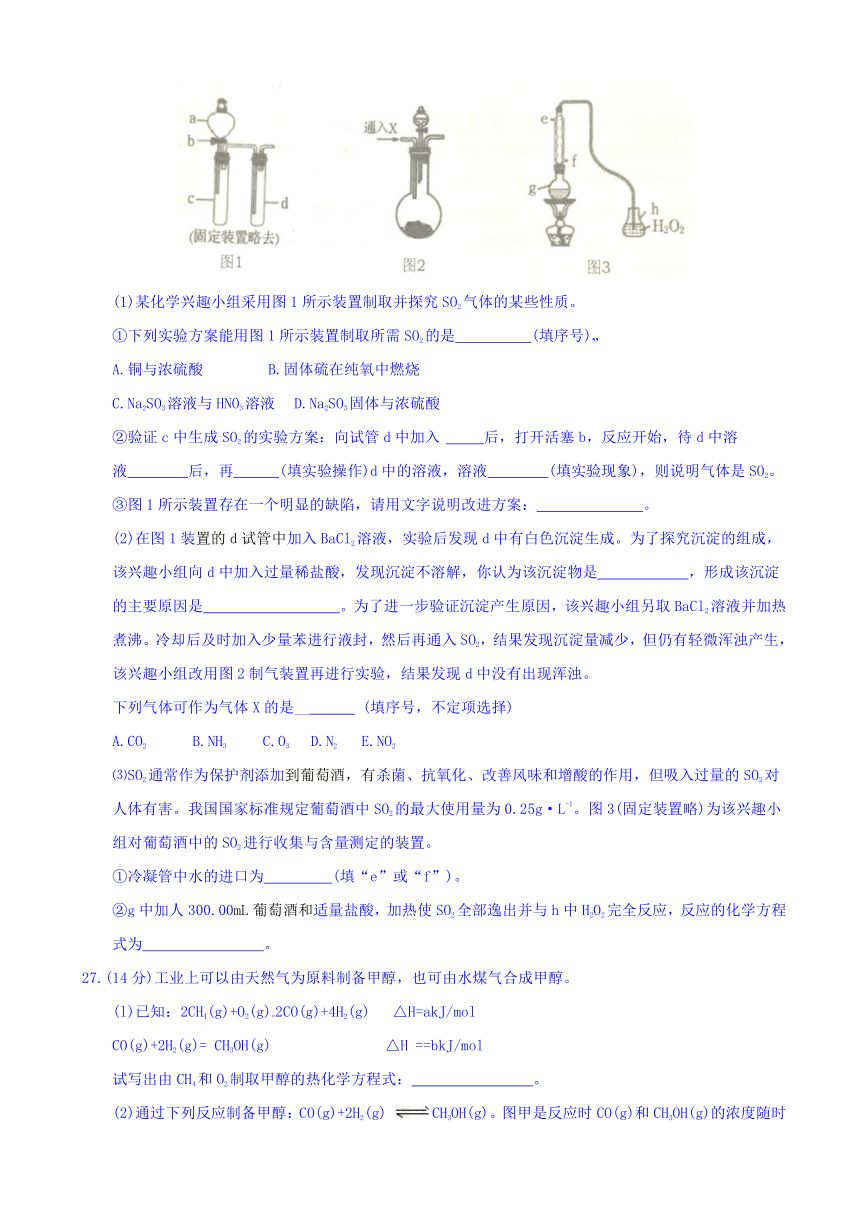 a
b
c
d
(固定装置略去)
图1
通入X
图2
e
f
g
h
H₂O₂
图3
(1)某化学兴趣小组采用图1所示装置制取并探究SO₂气体的某些性质。
①下列实验方案能用图1所示装置制取所需SO₂的是 (填序号)„
A.铜与浓硫酸 B.固体硫在纯氧中燃烧
C.Na₂SO₃溶液与HNO₃溶液 D.Na₂SO₃固体与浓硫酸
②验证c中生成SO₂的实验方案：向试管d中加入 后，打开活塞b，反应开始，待d中溶
液 后，再 (填实验操作)d中的溶液，溶液 (填实验现象)，则说明气体是SO₂。
③图1所示装置存在一个明显的缺陷，请用文字说明改进方案： 。
(2)在图1装置的d试管中加入BaCl₂溶液，实验后发现d中有白色沉淀生成。为了探究沉淀的组成，
该兴趣小组向d中加入过量稀盐酸，发现沉淀不溶解，你认为该沉淀物是 ，形成该沉淀
的主要原因是 。为了进一步验证沉淀产生原因，该兴趣小组另取BaCl₂溶液并加热
煮沸。冷却后及时加入少量苯进行液封，然后再通入SO₂，结果发现沉淀量减少，但仍有轻微浑浊产生，
该兴趣小组改用图2制气装置再进行实验，结果发现d中没有出现浑浊。
下列气体可作为气体X的是__ (填序号，不定项选择)
A.CO₂ B.NH₃ C.O₃ D.N₂ E.NO₂
⑶SO₂通常作为保护剂添加到葡萄酒，有杀菌、抗氧化、改善风味和增酸的作用，但吸入过量的SO₂对
人体有害。我国国家标准规定葡萄酒中SO₂的最大使用量为0.25g·L⁻¹。图3(固定装置略)为该兴趣小
组对葡萄酒中的SO₂进行收集与含量测定的装置。
①冷凝管中水的进口为 (填“e”或“f”)。
②g中加人300.00mL葡萄酒和适量盐酸，加热使SO₂全部逸出并与h中H₂O₂完全反应，反应的化学方程
式为 。
27.(14分)工业上可以由天然气为原料制备甲醇，也可由水煤气合成甲醇。
(l)已知：2CH₄(g)+O₂(g)₌2CO(g)+4H₂(g) △H=akJ/mol
CO(g)+2H₂(g)= CH₃OH(g) △H ==bkJ/mol
试写出由CH₄和O₂制取甲醇的热化学方程式： 。
(2)通过下列反应制备甲醇：CO(g)+2H₂(g) ⇌CH₃OH(g)。图甲是反应时CO(g)和CH₃OH(g)的浓度随时